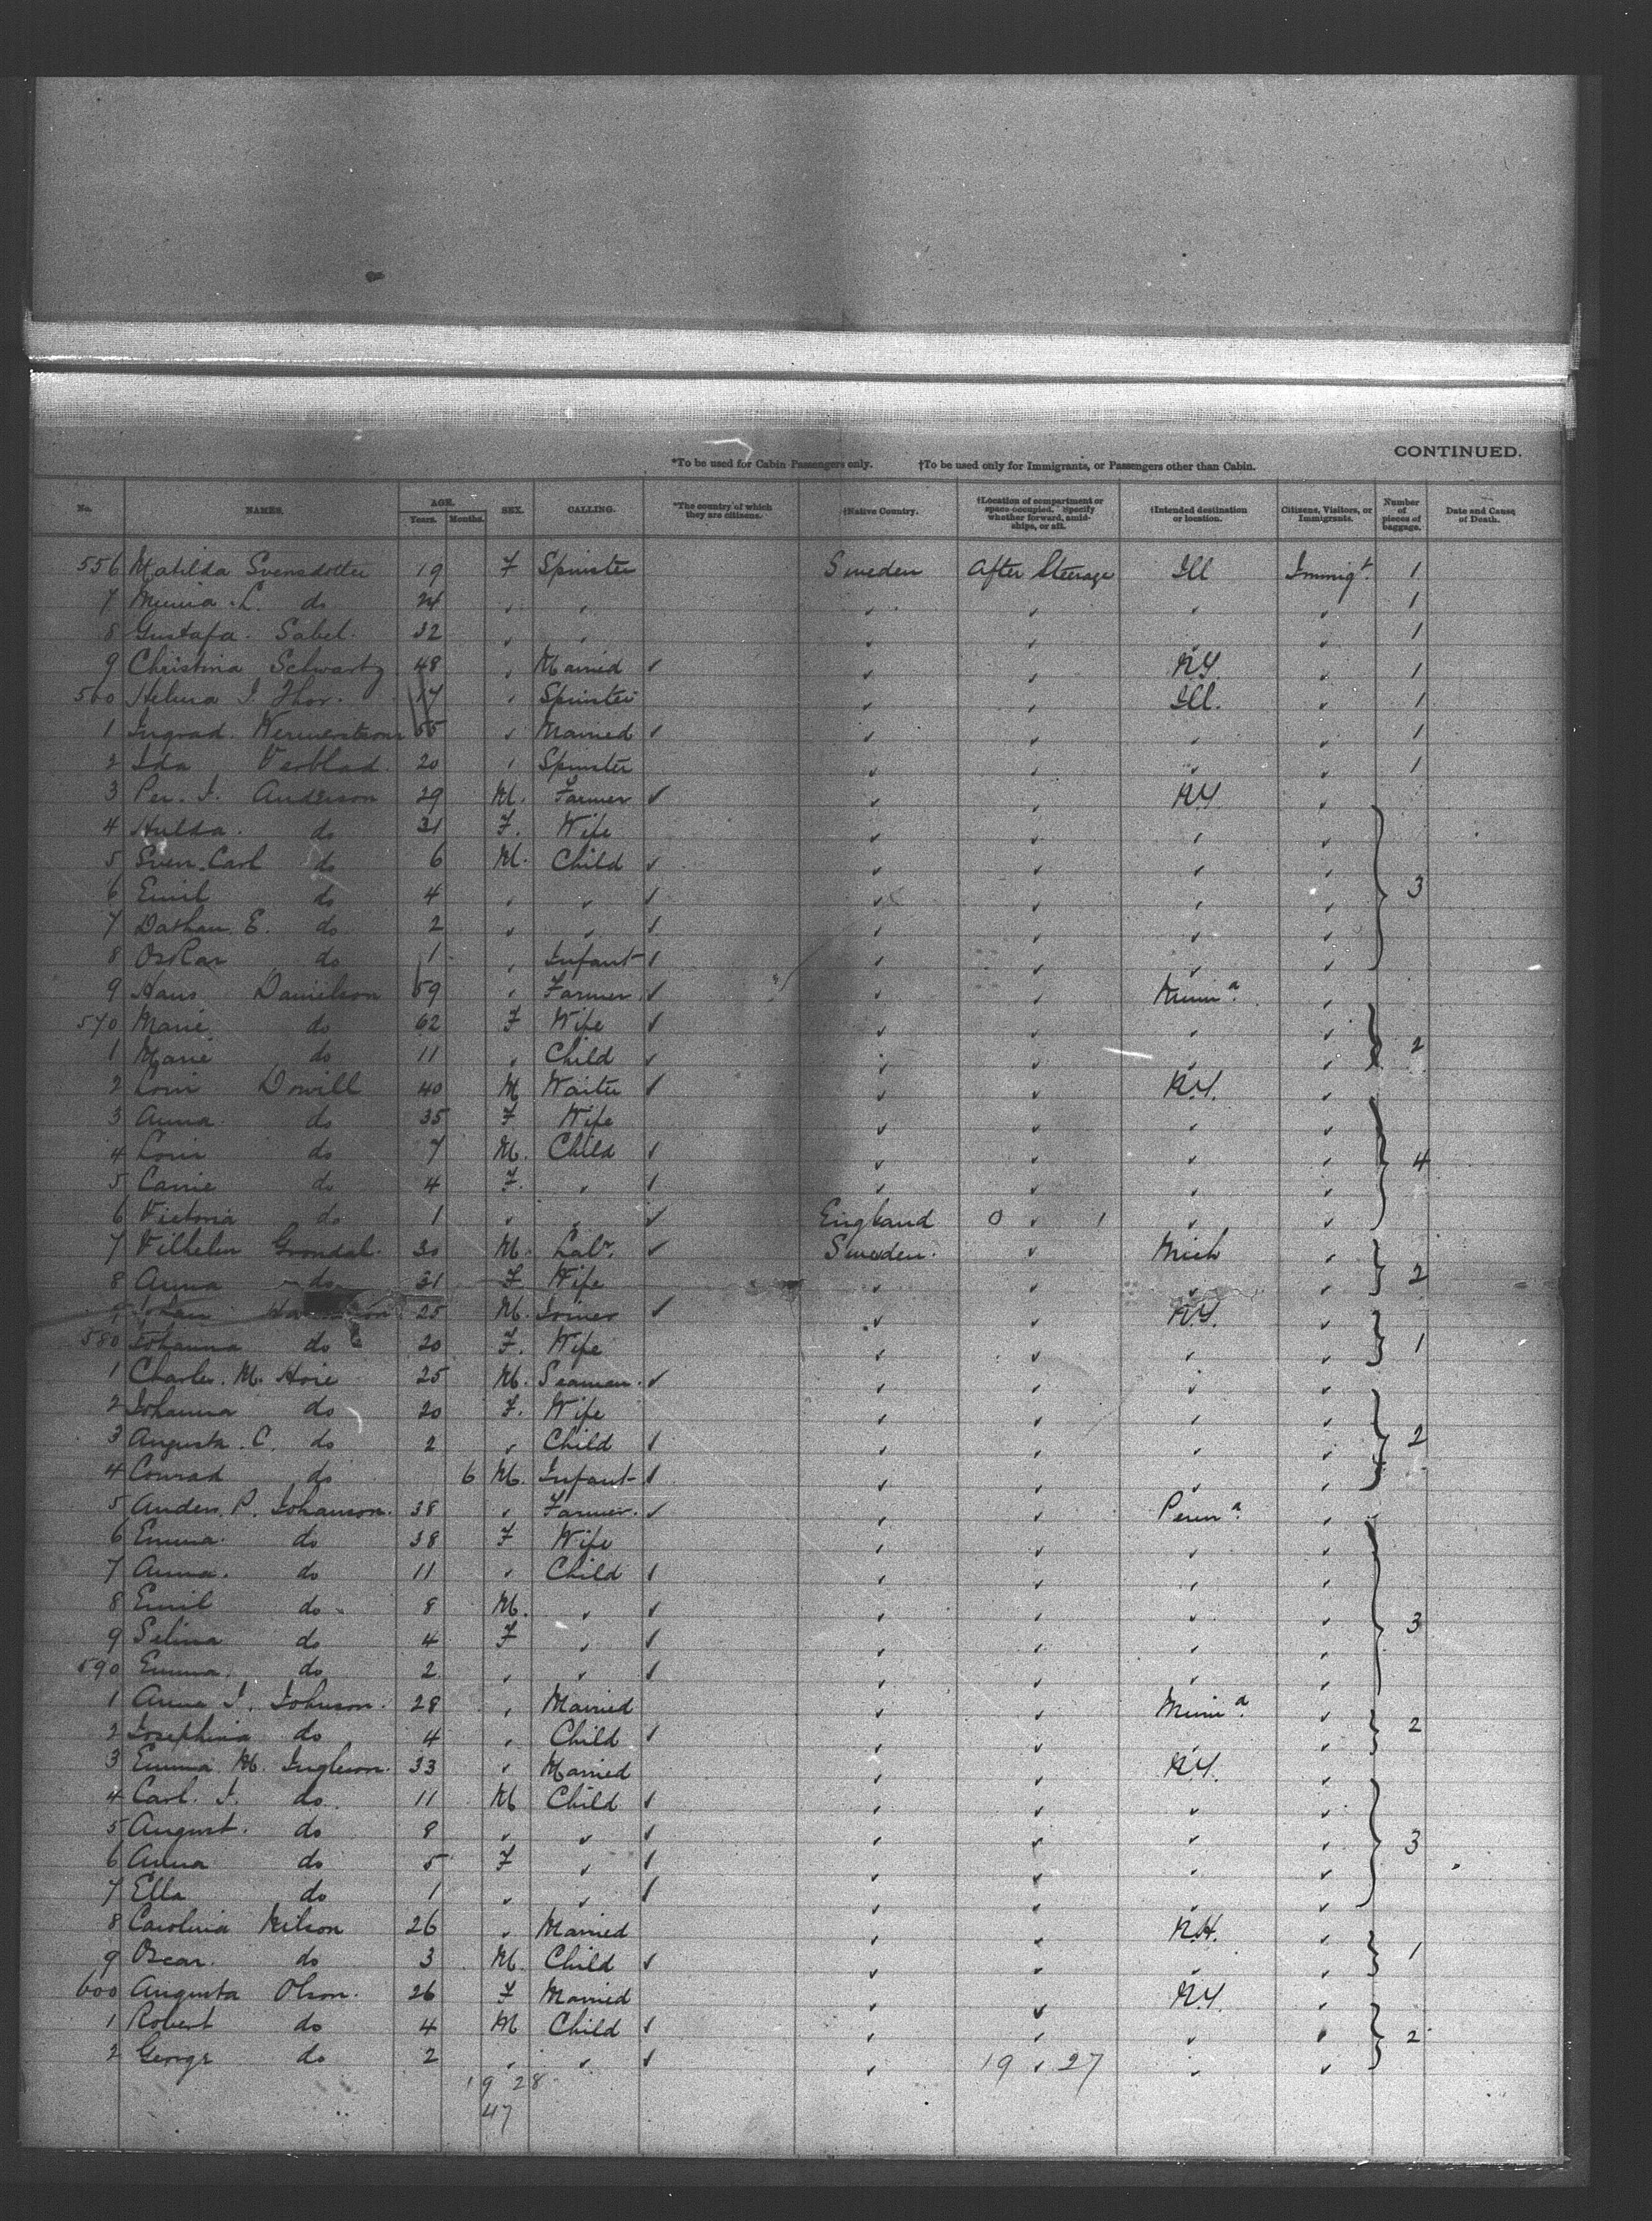 CONTINUED.
*To be used for Cabin Passengers only. †To be used only for Immigrants, or Passengers other than Cabin.
No. NAMES. AGE. Years. Months. SEX. CALLING. *The country of which they are citizens. †Native Country. †Location of compartment or space occupied. Specify whether forward, amidships, or aft. †Intended destination or location. Citizens, Visitors, or Immigrants. Number of pieces of baggage. Date and Cause of Death.
556 Matilda Svensdotter 19 F Spinster Sweden After Steerage Ill Immigt. 1
7 L. do 24 " " 1
8 Gustafa. Sabel. 32 " " 1
9 Christina Schwartz 48 " Married ✓ N.Y. 1
560 Helena J. Thor. 17 " Spinster Ill. 1
1 55 " Married ✓ 1
2 Ida 20 " Spinster 1
3 Per. J. Anderson 29 M. Farmer ✓ N.Y.
4 Hulda. do 31 F. Wife
5 Sven Carl do 6 M. Child ✓
6 Emil do 4 " " ✓ 3
7 E. do 2 " " ✓
8 Oskar do 1 " Infant ✓
9 Hans Danielson 59 " Farmer ✓ Minna.
570 Marie do 62 F Wife ✓
1 Marie do 11 " Child ✓ 2
2 Dowill 40 M Waiter ✓ N.Y.
3 Anna do 35 F Wife
4 do 7 M. Child ✓ 4
5 Carrie do 4 F. " ✓
6 Victoria do 1 " " ✓ England 0 " 1
7 Vilhelm Grondal. 30 M. Labr. ✓ Sweden. Mich
8 Anna do 31 F Wife 2
9 25 M. Joiner ✓ N.Y.
580 Johanna do 20 F. Wife 1
1 Charles. M. Hoie 25 M. Seaman. ✓
2 Johanna do 20 F. Wife
3 Augusta. C. do 2 " Child ✓ 2
4 Conrad do 6 M. Infant ✓
5 Anders. P. Johanson. 38 " Farmer. ✓ Penna.
6 Emma. do 38 F Wife
7 Anna. do 11 " Child ✓
8 Emil do 8 M. " ✓ 3
9 Selina do 4 F " ✓
590 Emma. do 2 " " ✓
1 Anna J. Johnson. 28 " Married Minna.
2 Josephina do 4 " Child ✓ 2
3 Emma M. Ingleson. 33 " Married N.Y.
4 Carl. J. do 11 M Child ✓
5 August. do 8 " " ✓ 3
6 Anna do 5 F " ✓
7 Ella do 1 " " ✓
8 Carolina Nilson 26 " Married N.H.
9 Oscar. do 3 M. Child ✓ 1
600 Augusta Olson. 26 F Married N.Y.
1 Robert do 4 M Child ✓ 2
2 George do 2 " " ✓ 19 " 27
19 28
47